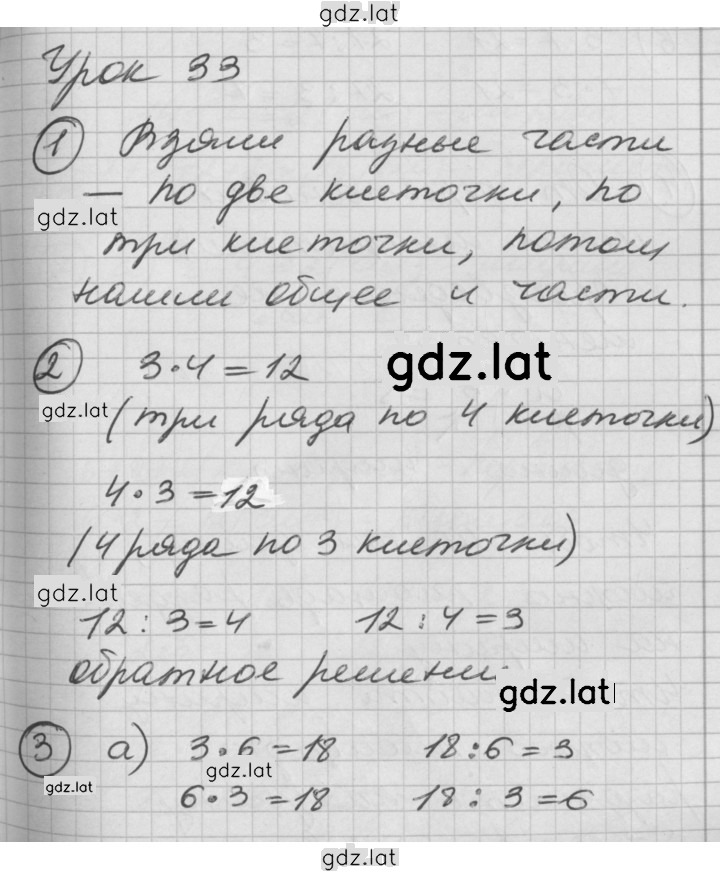 gdz.lat
Урок 33
1 Взяли разные части
— по две клеточки, по
gdz.lat
три клеточки, потом
нашли общее и части.
2 3·4=12
gdz.lat
gdz.lat
(три ряда по 4 клеточки)
4·3=12
(4 ряда по 3 клеточки)
gdz.lat
12:3=4 12:4=3
обратное решени
gdz.lat
3 а) 3·6=18 18:6=3
gdz.lat
gdz.lat
6·3=18 18:3=6
gdz.lat